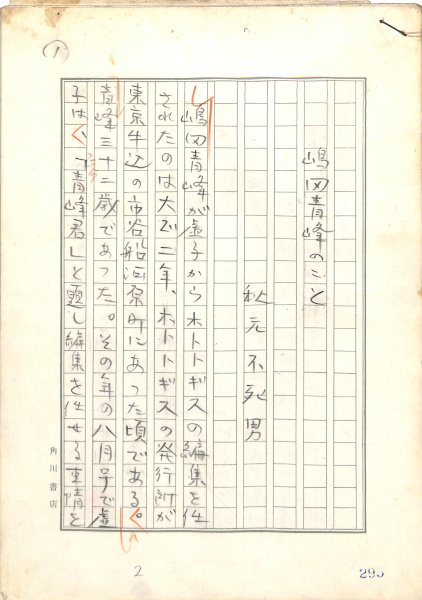 ①
嶋田青峰のこと
秋元不死男
嶋田青峰が虚子からホトトギスの編集を任
されたのは大正二年、ホトトギスの発行所が
東京牛込の市谷船河原町にあった頃である。
青峰三十二歳であった。その年の八月号で虚
子は「青峰君」と題し編集を任せる事情を
角川書店
2
295